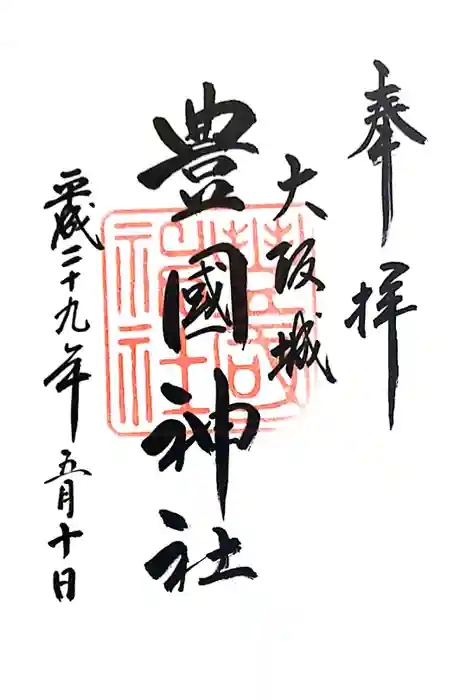 奉拝
大阪城
豊國神社
平成二十九年五月十日